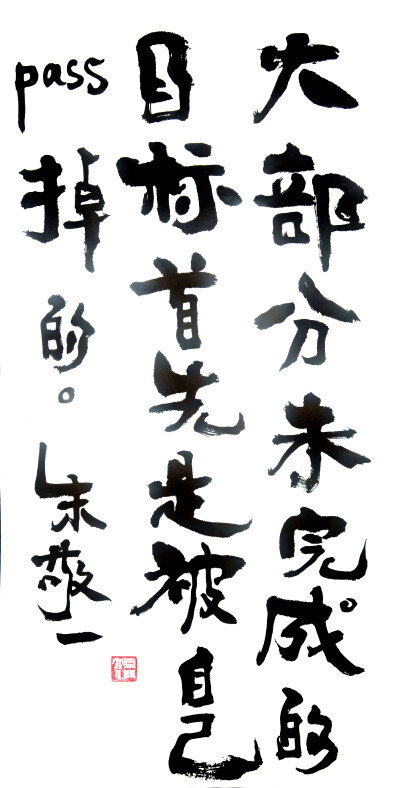 大部分未完成的
目标首先是被自己
pass掉的。朱敬一